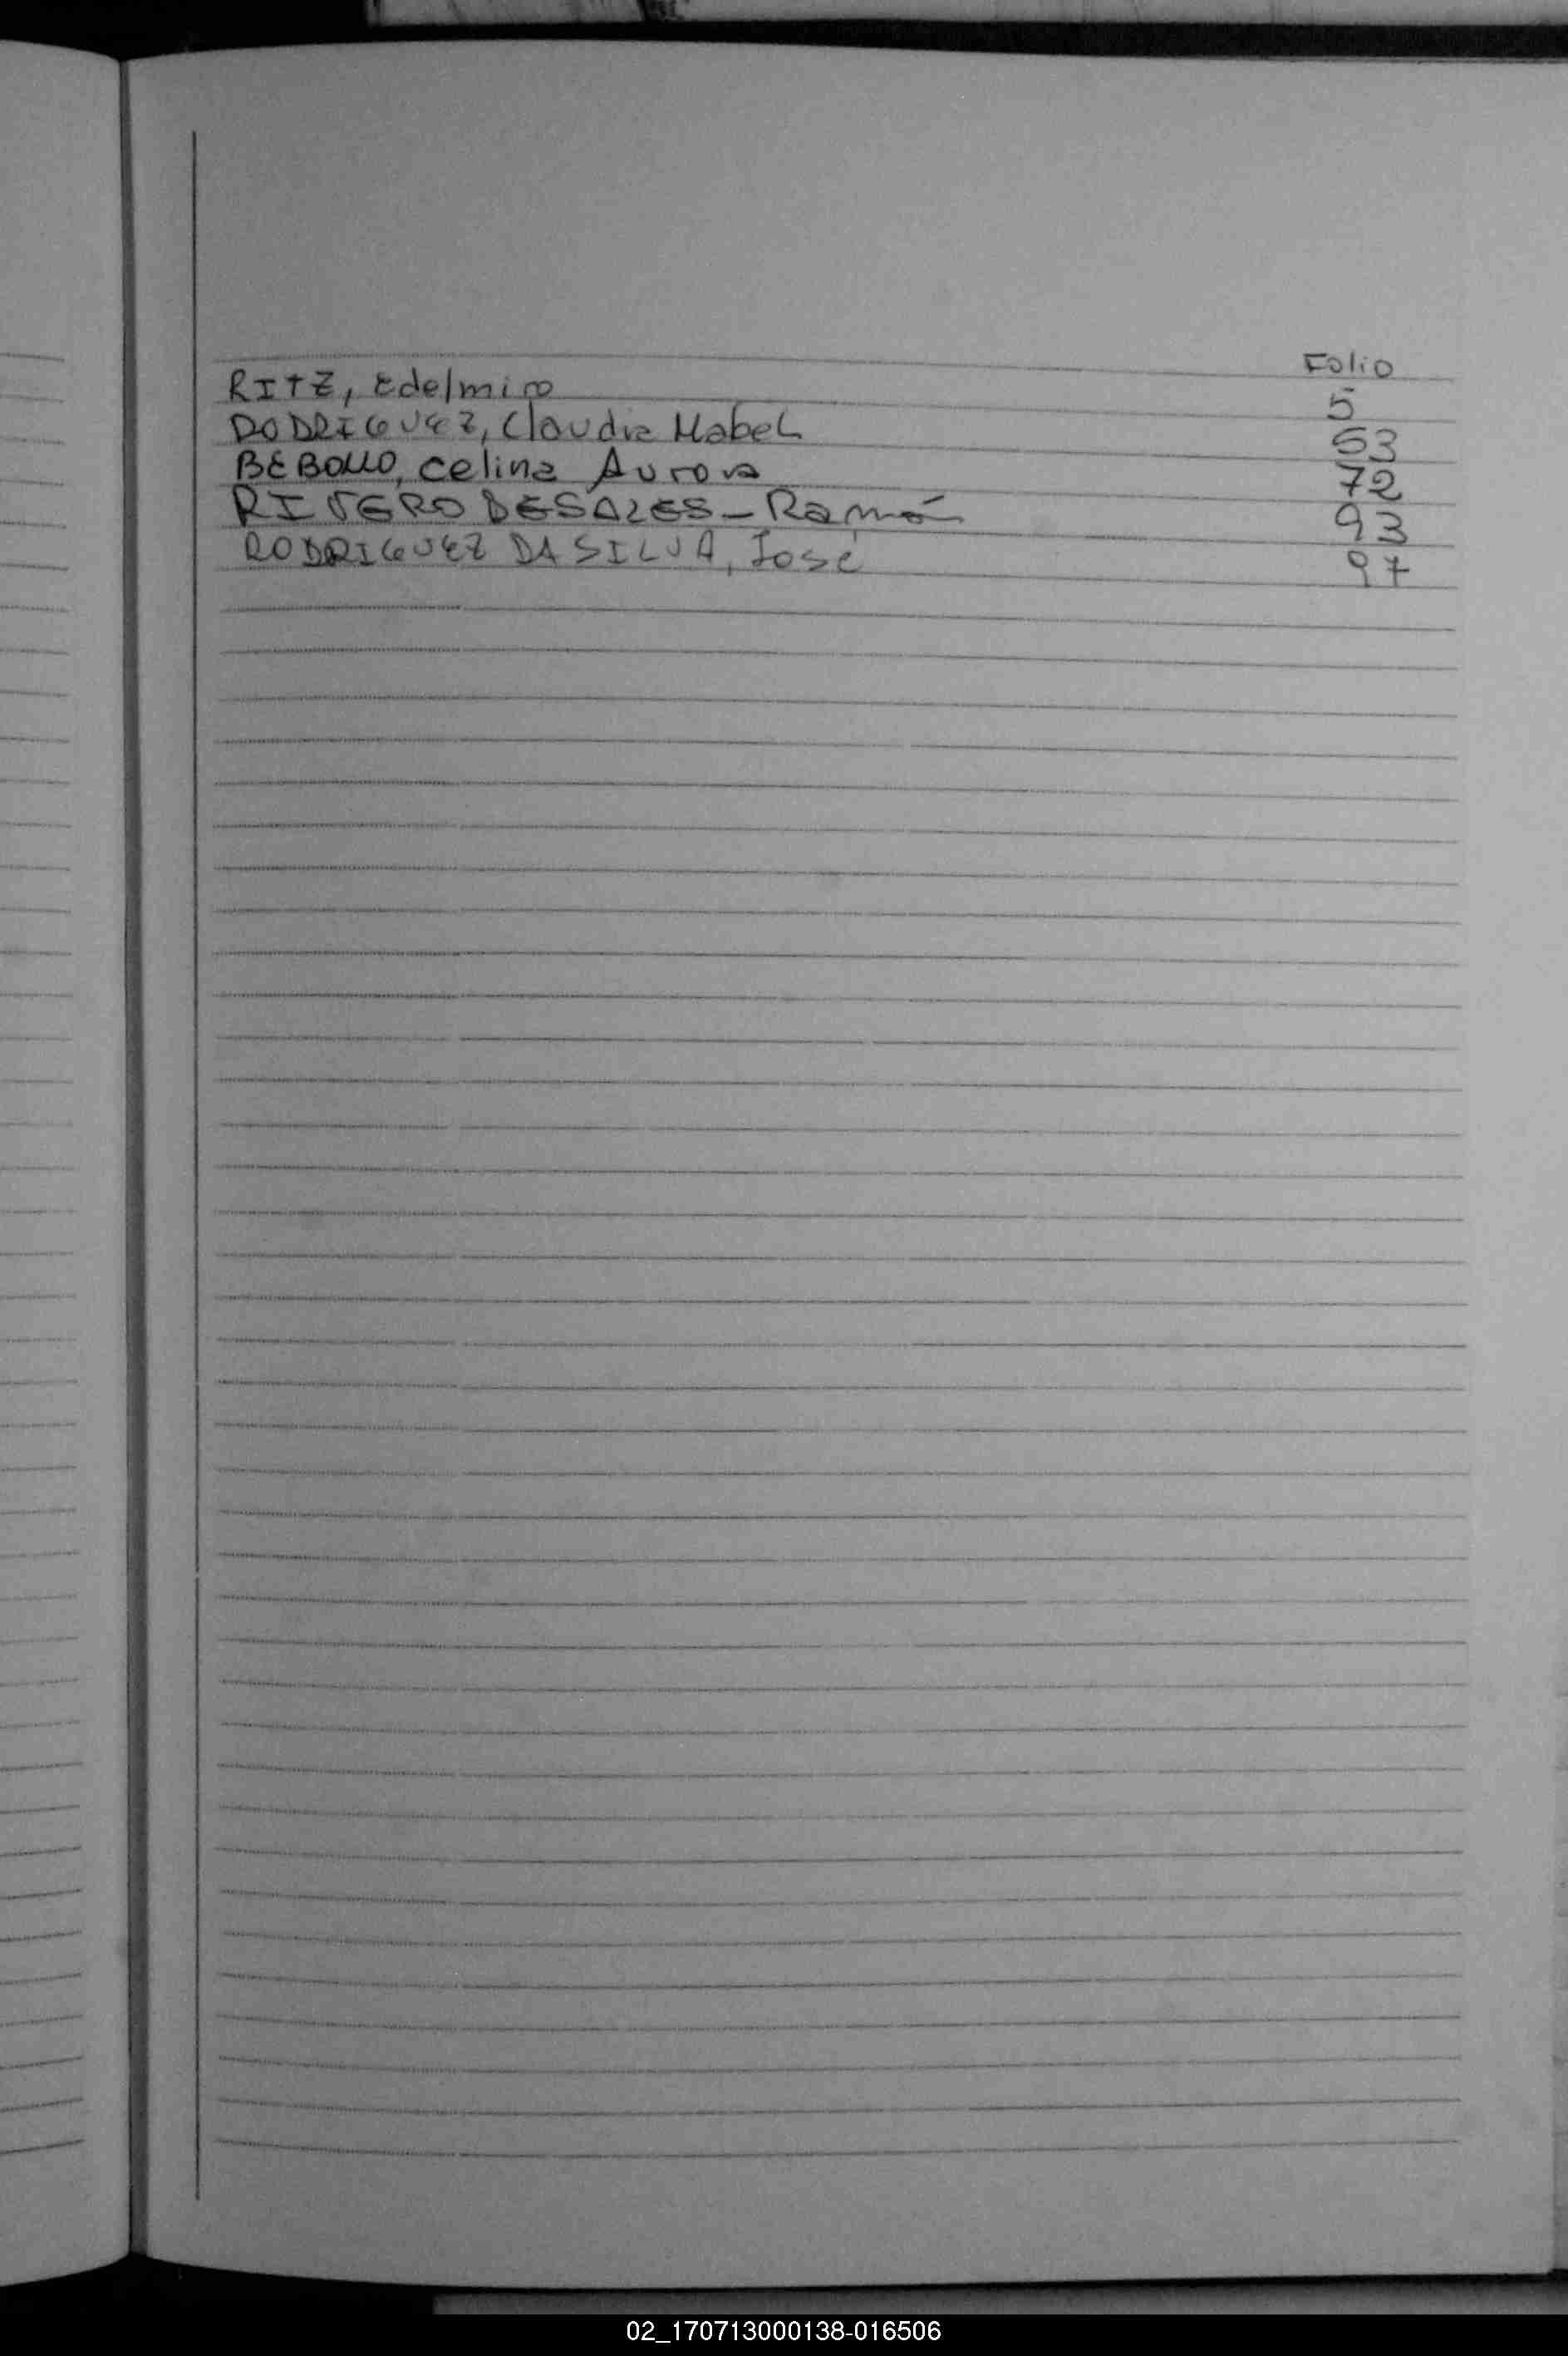 Folio
RITZ, Edelmiro 5
RODRIGUEZ, Claudia Mabel 53
REBOLLO, Celina Aurora 72
RIVERO DESALES - Ramón 93
RODRIGUEZ DA SILVA, José 97
02_170713000138-016506